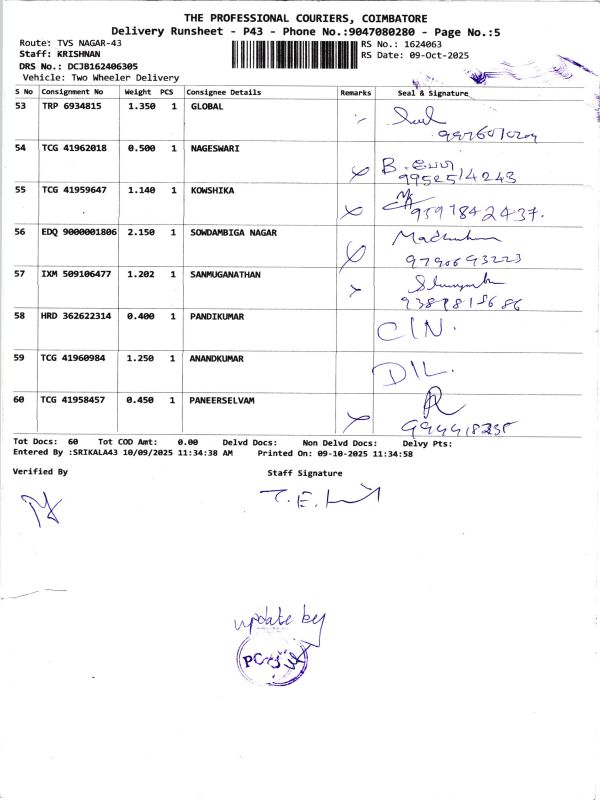 THE PROFESSIONAL COURIERS, COIMBATORE
Delivery Runsheet - P43 - Phone No.:9047080280 - Page No.:5
Route: TVS NAGAR-43 RS No.: 1624063
Staff: KRISHNAN RS Date: 09-Oct-2025
DRS No.: DCJB162406305
Vehicle: Two Wheeler Delivery
S No Consignment No Weight PCS Consignee Details Remarks Seal & Signature
53 TRP 6934815 1.350 1 GLOBAL
54 TCG 41962018 0.500 1 NAGESWARI B.
9952514243
55 TCG 41959647 1.140 1 KOWSHIKA
9597842437.
56 EDQ 9000001806 2.150 1 SOWDAMBIGA NAGAR
9790693223
57 IXM 509106477 1.202 1 SANMUGANATHAN
58 HRD 362622314 0.400 1 PANDIKUMAR
59 TCG 41960984 1.250 1 ANANDKUMAR DIL.
60 TCG 41958457 0.450 1 PANEERSELVAM
Tot Docs: 60 Tot COD Amt: 0.00 Delvd Docs: Non Delvd Docs: Delvy Pts:
Entered By :SRIKALA43 10/09/2025 11:34:38 AM Printed On: 09-10-2025 11:34:58
Verified By Staff Signature
update by